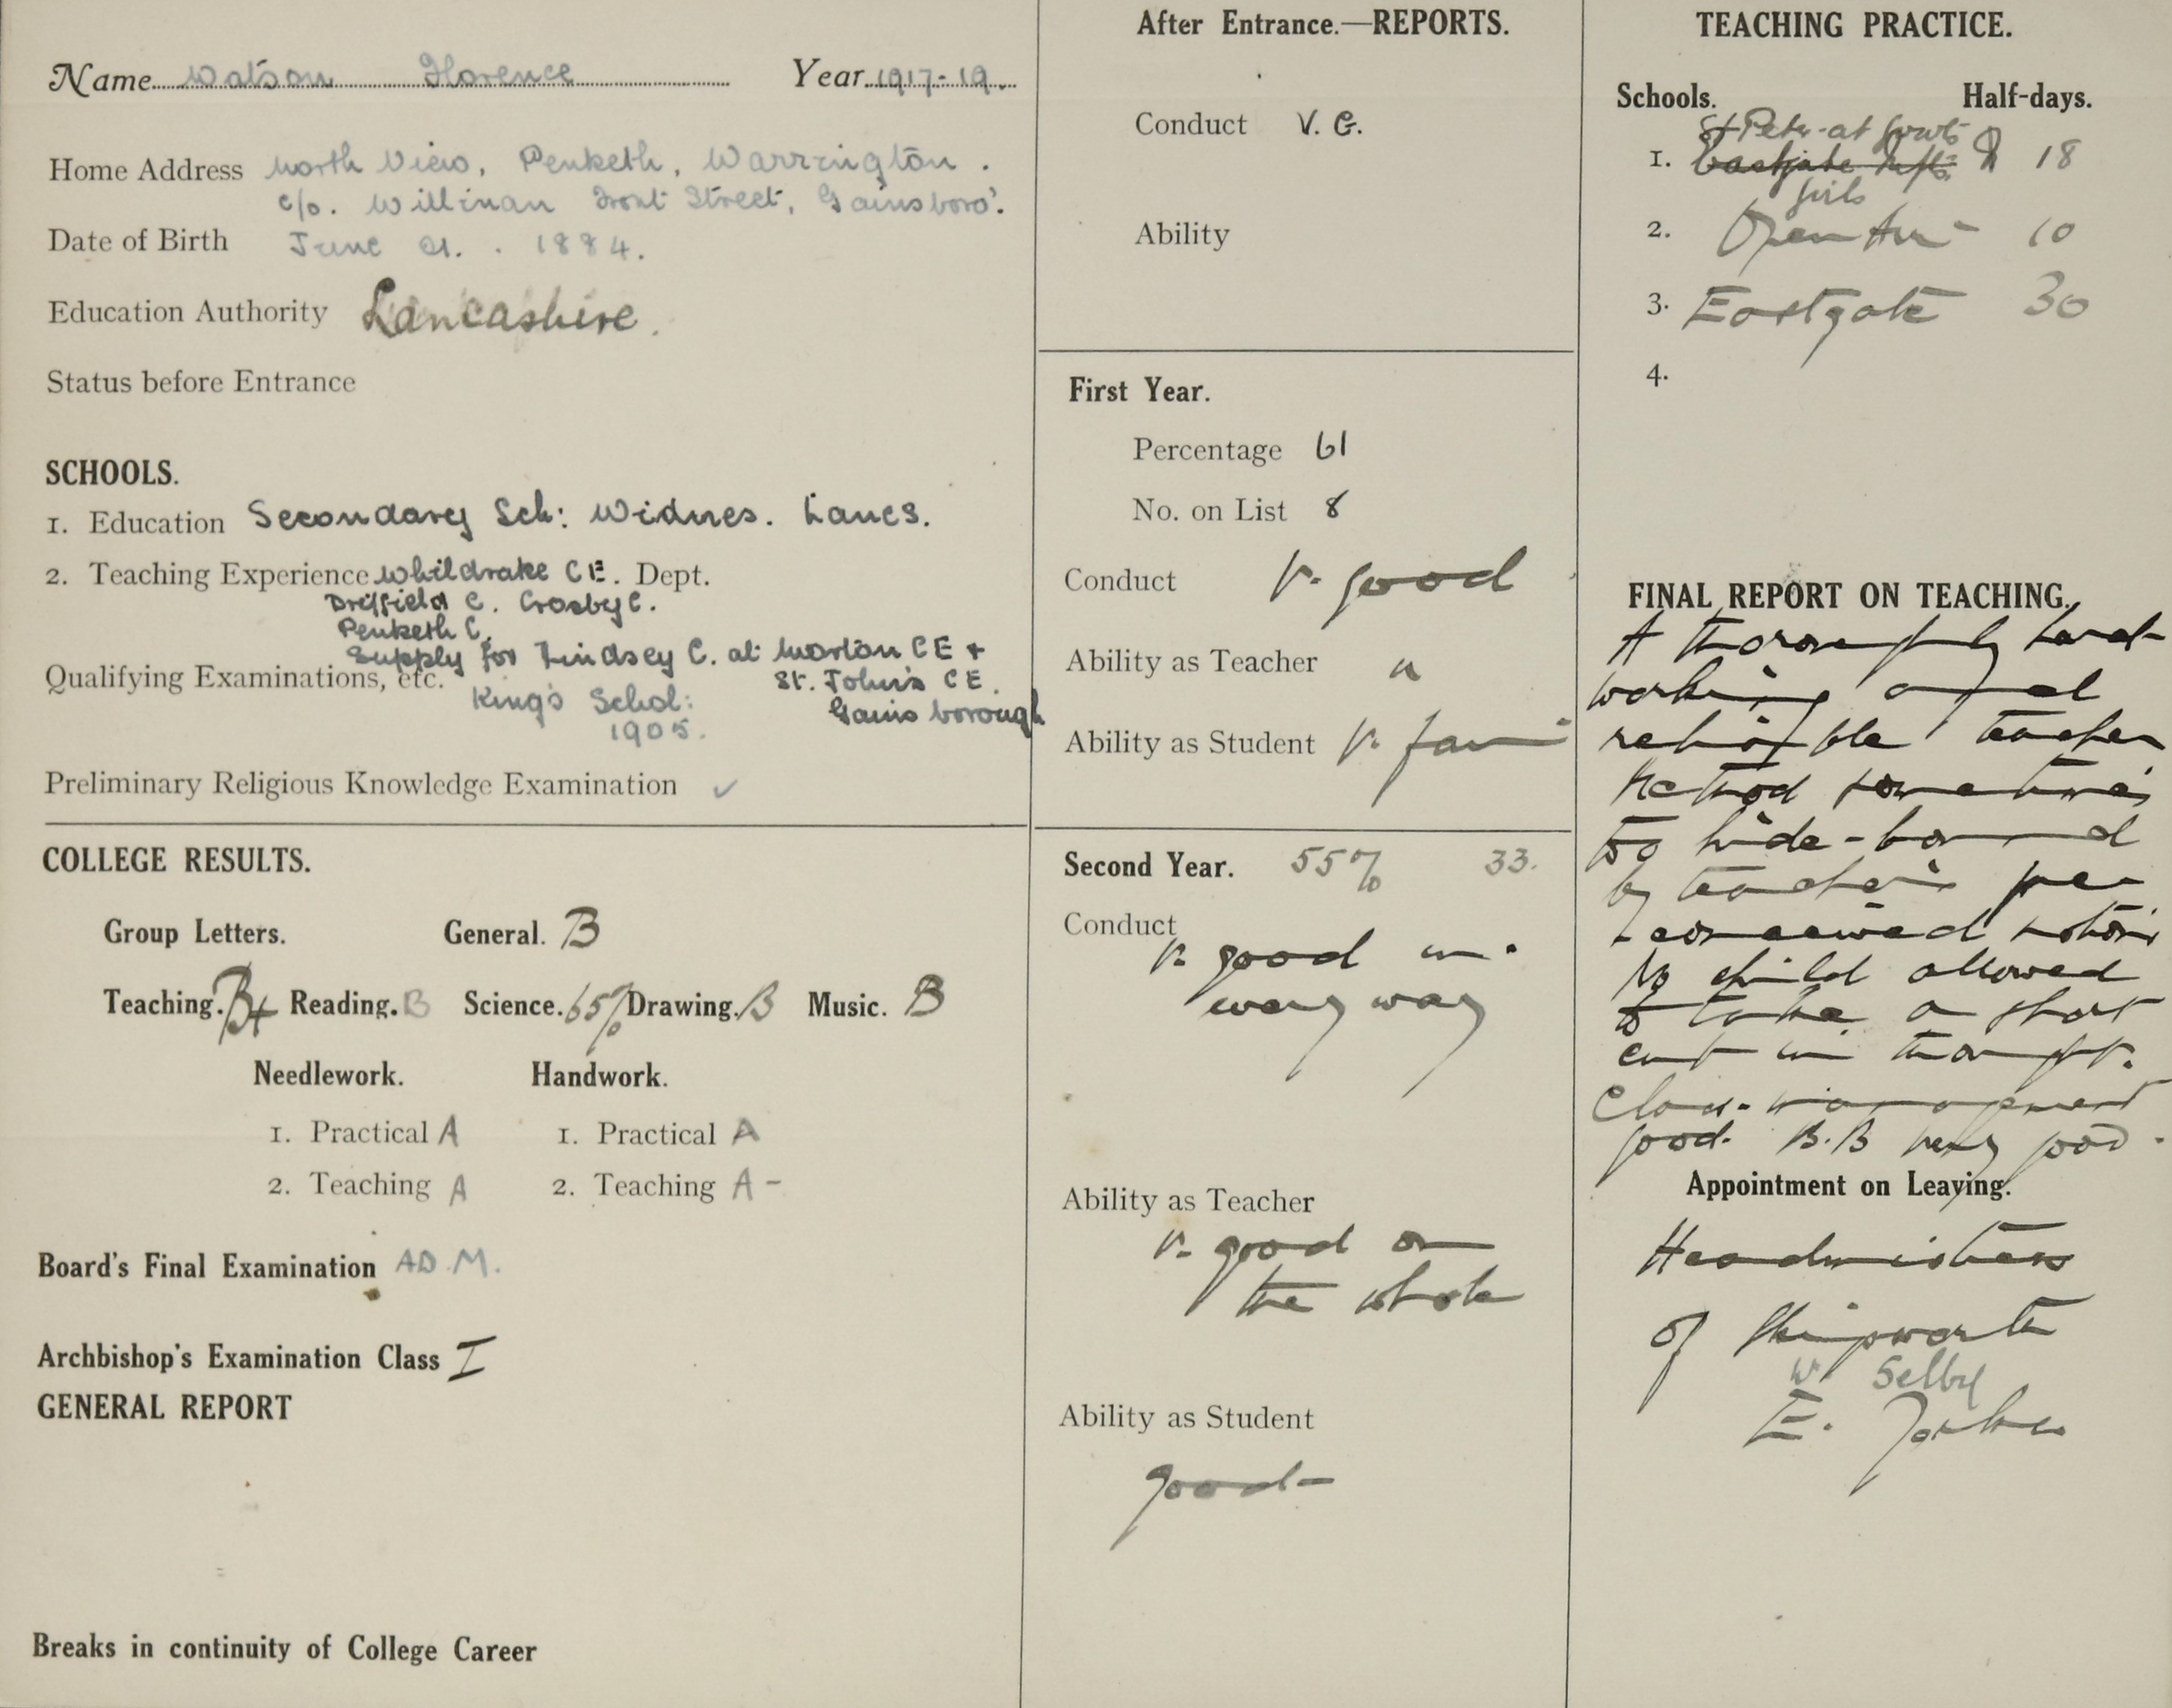 Name Watson Florence Year 1917-19.
Home Address North View, Penketh, Warrington.
c/o. Willman Front Street, Gainsboro'.
Date of Birth June 21. 1884.
Education Authority Lancashire.
Status before Entrance
SCHOOLS.
1. Education Secondary Sch: Widnes. Lancs.
2. Teaching Experience Whildrake CE. Dept.
Driffield C. Crosby C.
Penketh C.
Supply for Lindsey C. at Morton CE +
St. John's CE.
Gainsborough
Qualifying Examinations, etc. King's Schol:
1905.
Preliminary Religious Knowledge Examination ✓
COLLEGE RESULTS.
Group Letters. General. B
Teaching. B+ Reading. B Science. 65% Drawing. B Music. B
Needlework. Handwork.
1. Practical A 1. Practical A
2. Teaching A 2. Teaching A-
Board's Final Examination AD.M.
Archbishop's Examination Class I
GENERAL REPORT
Breaks in continuity of College Career
After Entrance.—REPORTS.
Conduct V. G.
Ability
First Year.
Percentage 61
No. on List 8
Conduct V. good
Ability as Teacher "
Ability as Student V. fair
Second Year. 55% 33.
Conduct
V. good in
every way
Ability as Teacher
V. good on
the whole
Ability as Student
good-
TEACHING PRACTICE.
Schools. Half-days.
St Peter-at Gowts
1. Eastgate Infts. 18
Girls
2. Open Air 10
3. Eastgate 30
4.
FINAL REPORT ON TEACHING.
A thoroughly hard-
working and
reliable teacher
Method sometimes
too hide-bound
by teacher's pre
-conceived notions
No child allowed
to take a short
cut in thought.
Class-management
good. B.B very good.
Appointment on Leaving.
Headmistress
of Skipwith
Nr Selby
E. Yorks